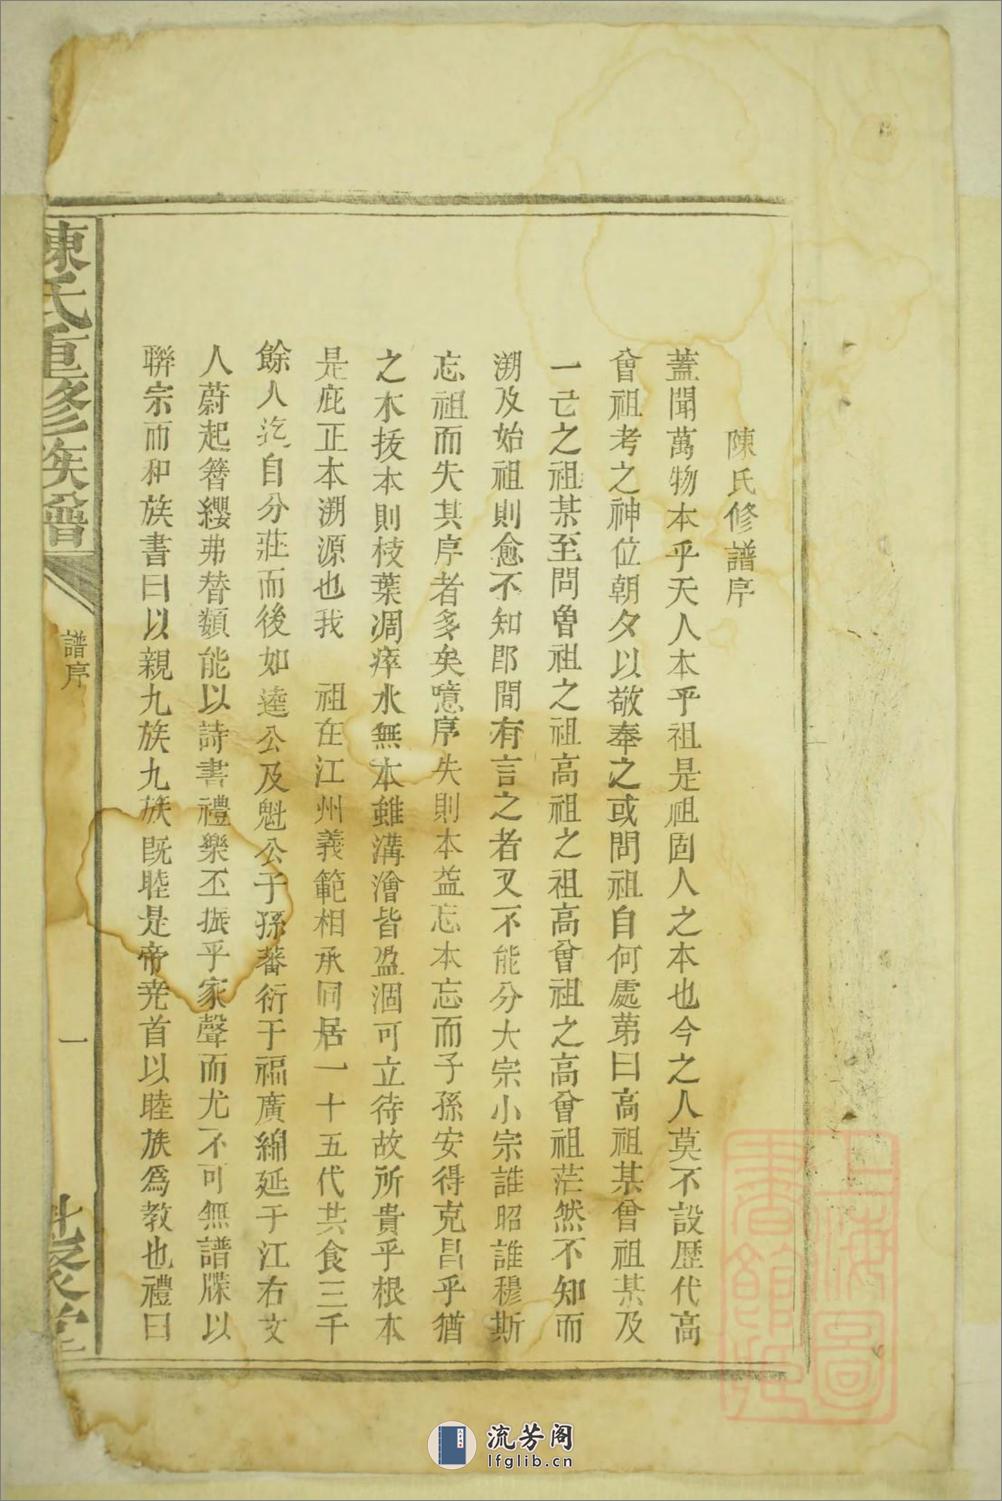 陳氏修譜序
蓋聞萬物本乎天人本乎祖是祖固人之本也今之人莫不設歷代高
曾祖考之神位朝夕以敬奉之或問祖自何處苐曰高祖某曾祖某及
一己之祖某至問曾祖之祖高祖之祖高曾祖之高曾祖茫然不知而
溯及始祖則愈不知即間有言之者又不能分大宗小宗誰昭誰穆斯
忘祖而失其序者多矣噫序失則本益忘本忘而子孫安得克昌乎猶
之木拔本則枝葉凋瘁水無本雖溝澮皆盈涸可立待故所貴乎根本
是庇正本溯源也我 祖在江州義範相承同居一十五代共食三千
餘人迄自分莊而後如逵公及魁公子孫蕃衍于福廣綿延于江右文
人蔚起簪纓弗替類能以詩書禮樂丕振乎家聲而尤不可無譜牒以
聯宗而和族書曰以親九族九族既睦是帝尭首以睦族為教也禮曰
陳氏重修族譜
譜序
一
聚堂
上海圖書館藏
流芳阁
lfglib.cn